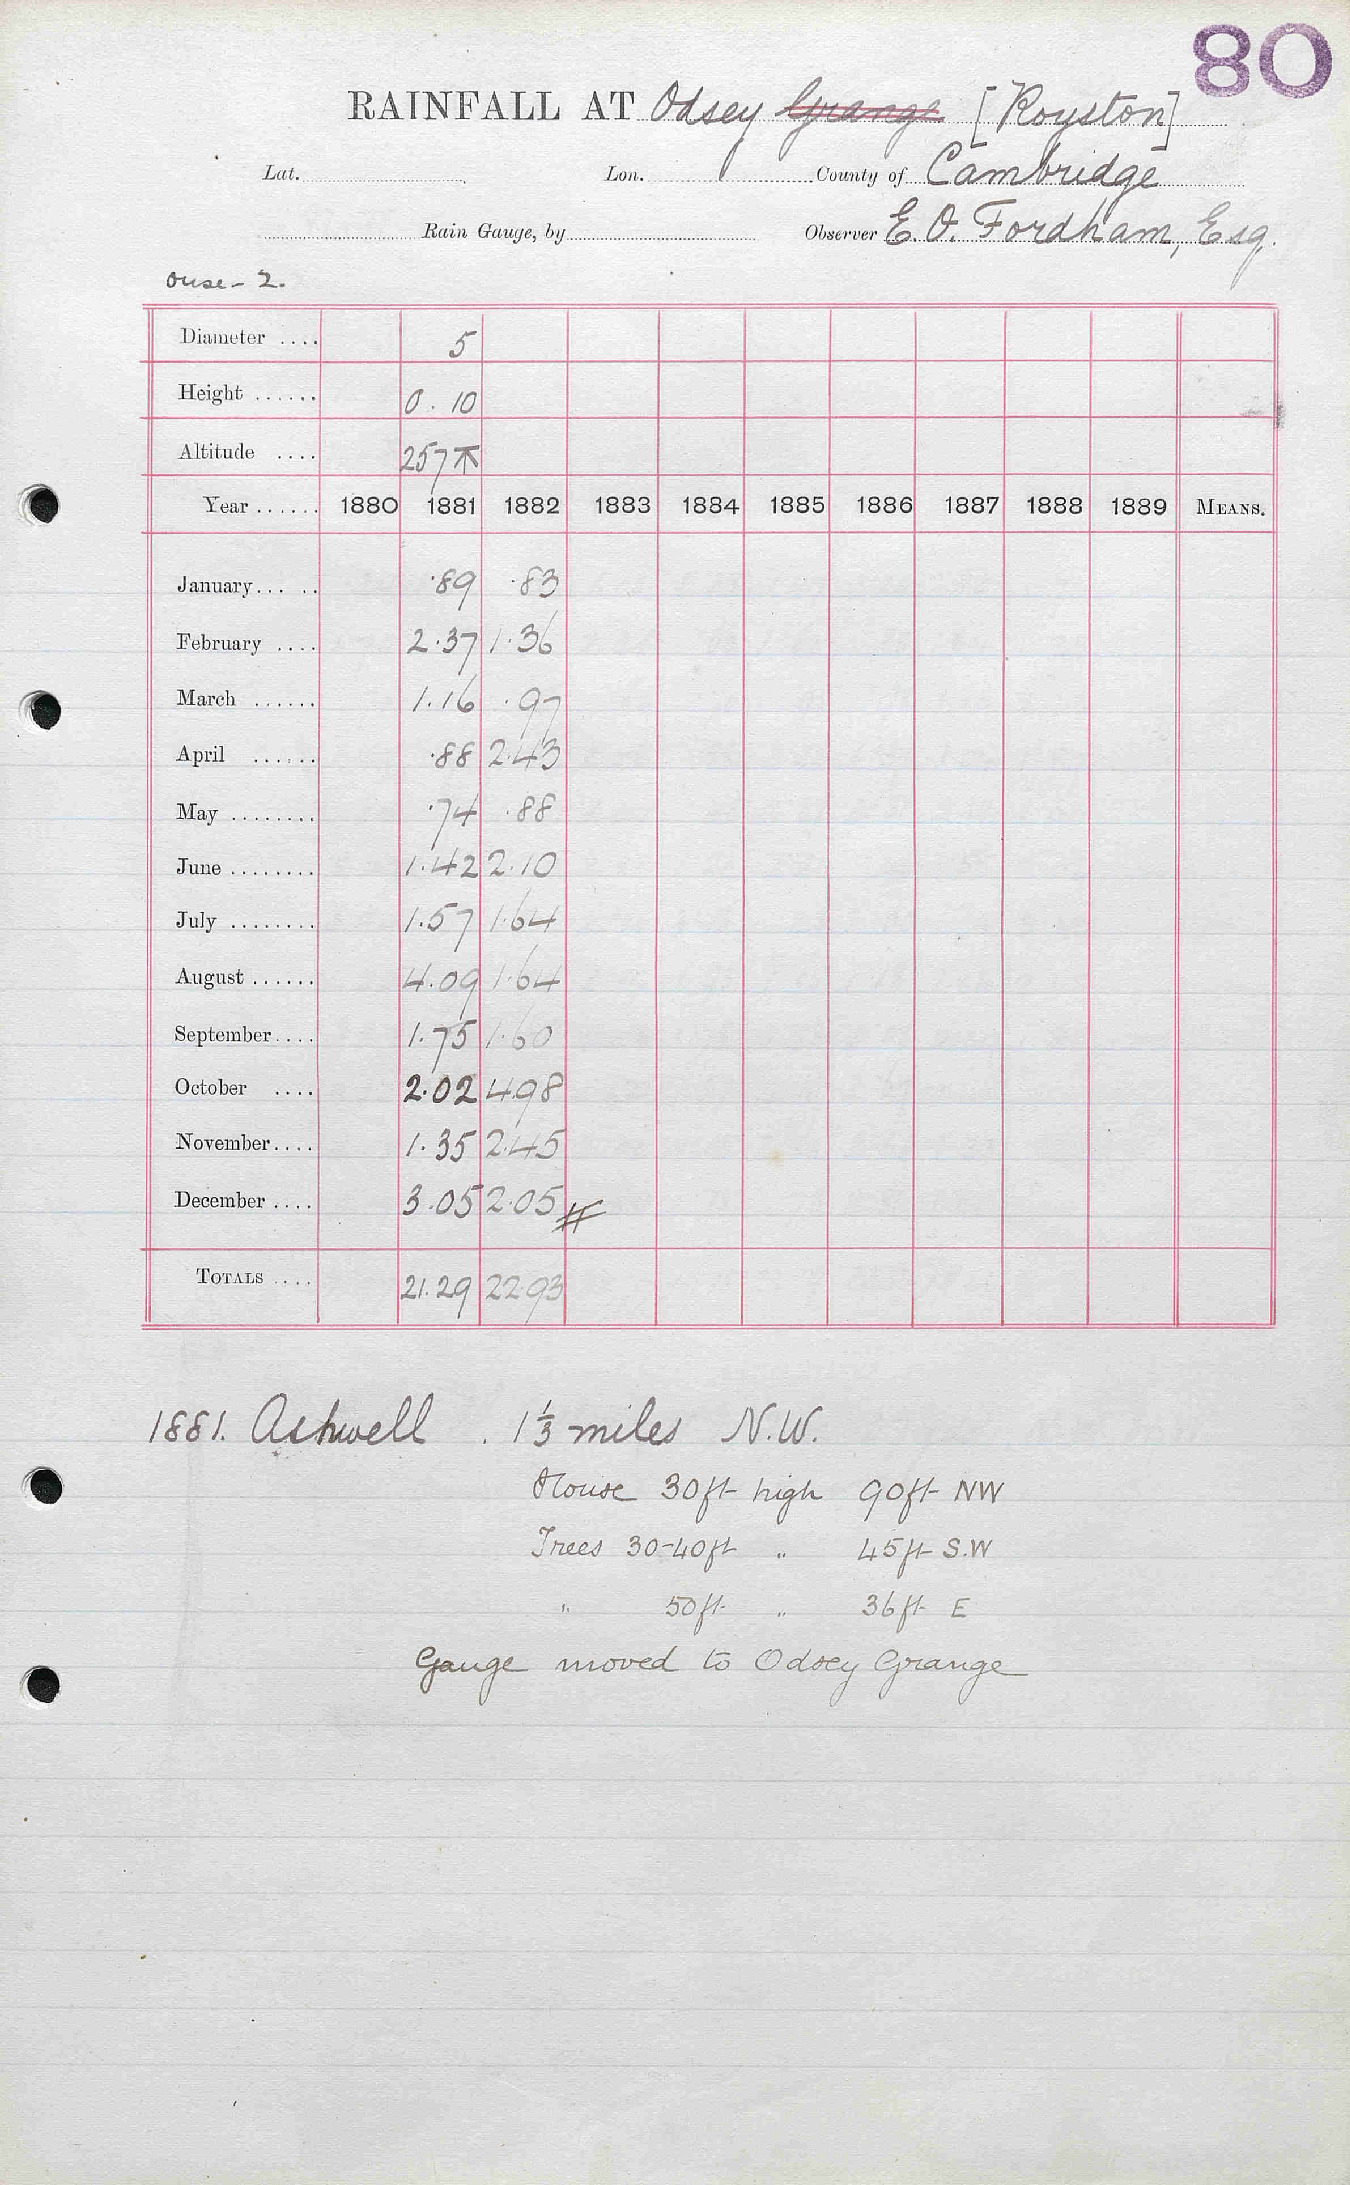 80
RAINFALL AT Odsey Grange [Royston]
Lat. Lon. County of Cambridge
Rain Gauge, by Observer E. O. Fordham, Esq.
Ouse - 2.
Diameter .... 5
Height ...... 0. 10
Altitude .... 257
Year ...... 1880 1881 1882 1883 1884 1885 1886 1887 1888 1889 MEANS.
January... .. .89 .83
February .... 2.37 1.36
March ...... 1.16 .97
April ...... .88 2.43
May ........ .74 .88
June ........ 1.42 2.10
July ........ 1.57 1.64
August ...... 4.09 1.64
September.... 1.75 1.60
October .... 2.02 4.98
November.... 1.35 2.45
December .... 3.05 2.05
TOTALS .... 21.29 22.93
1881. Ashwell . 1⅓ miles N.W.
House 30ft high 90ft NW
Trees 30-40ft " 45ft S.W
" 50ft " 36ft E
Gauge moved to Odsey Grange